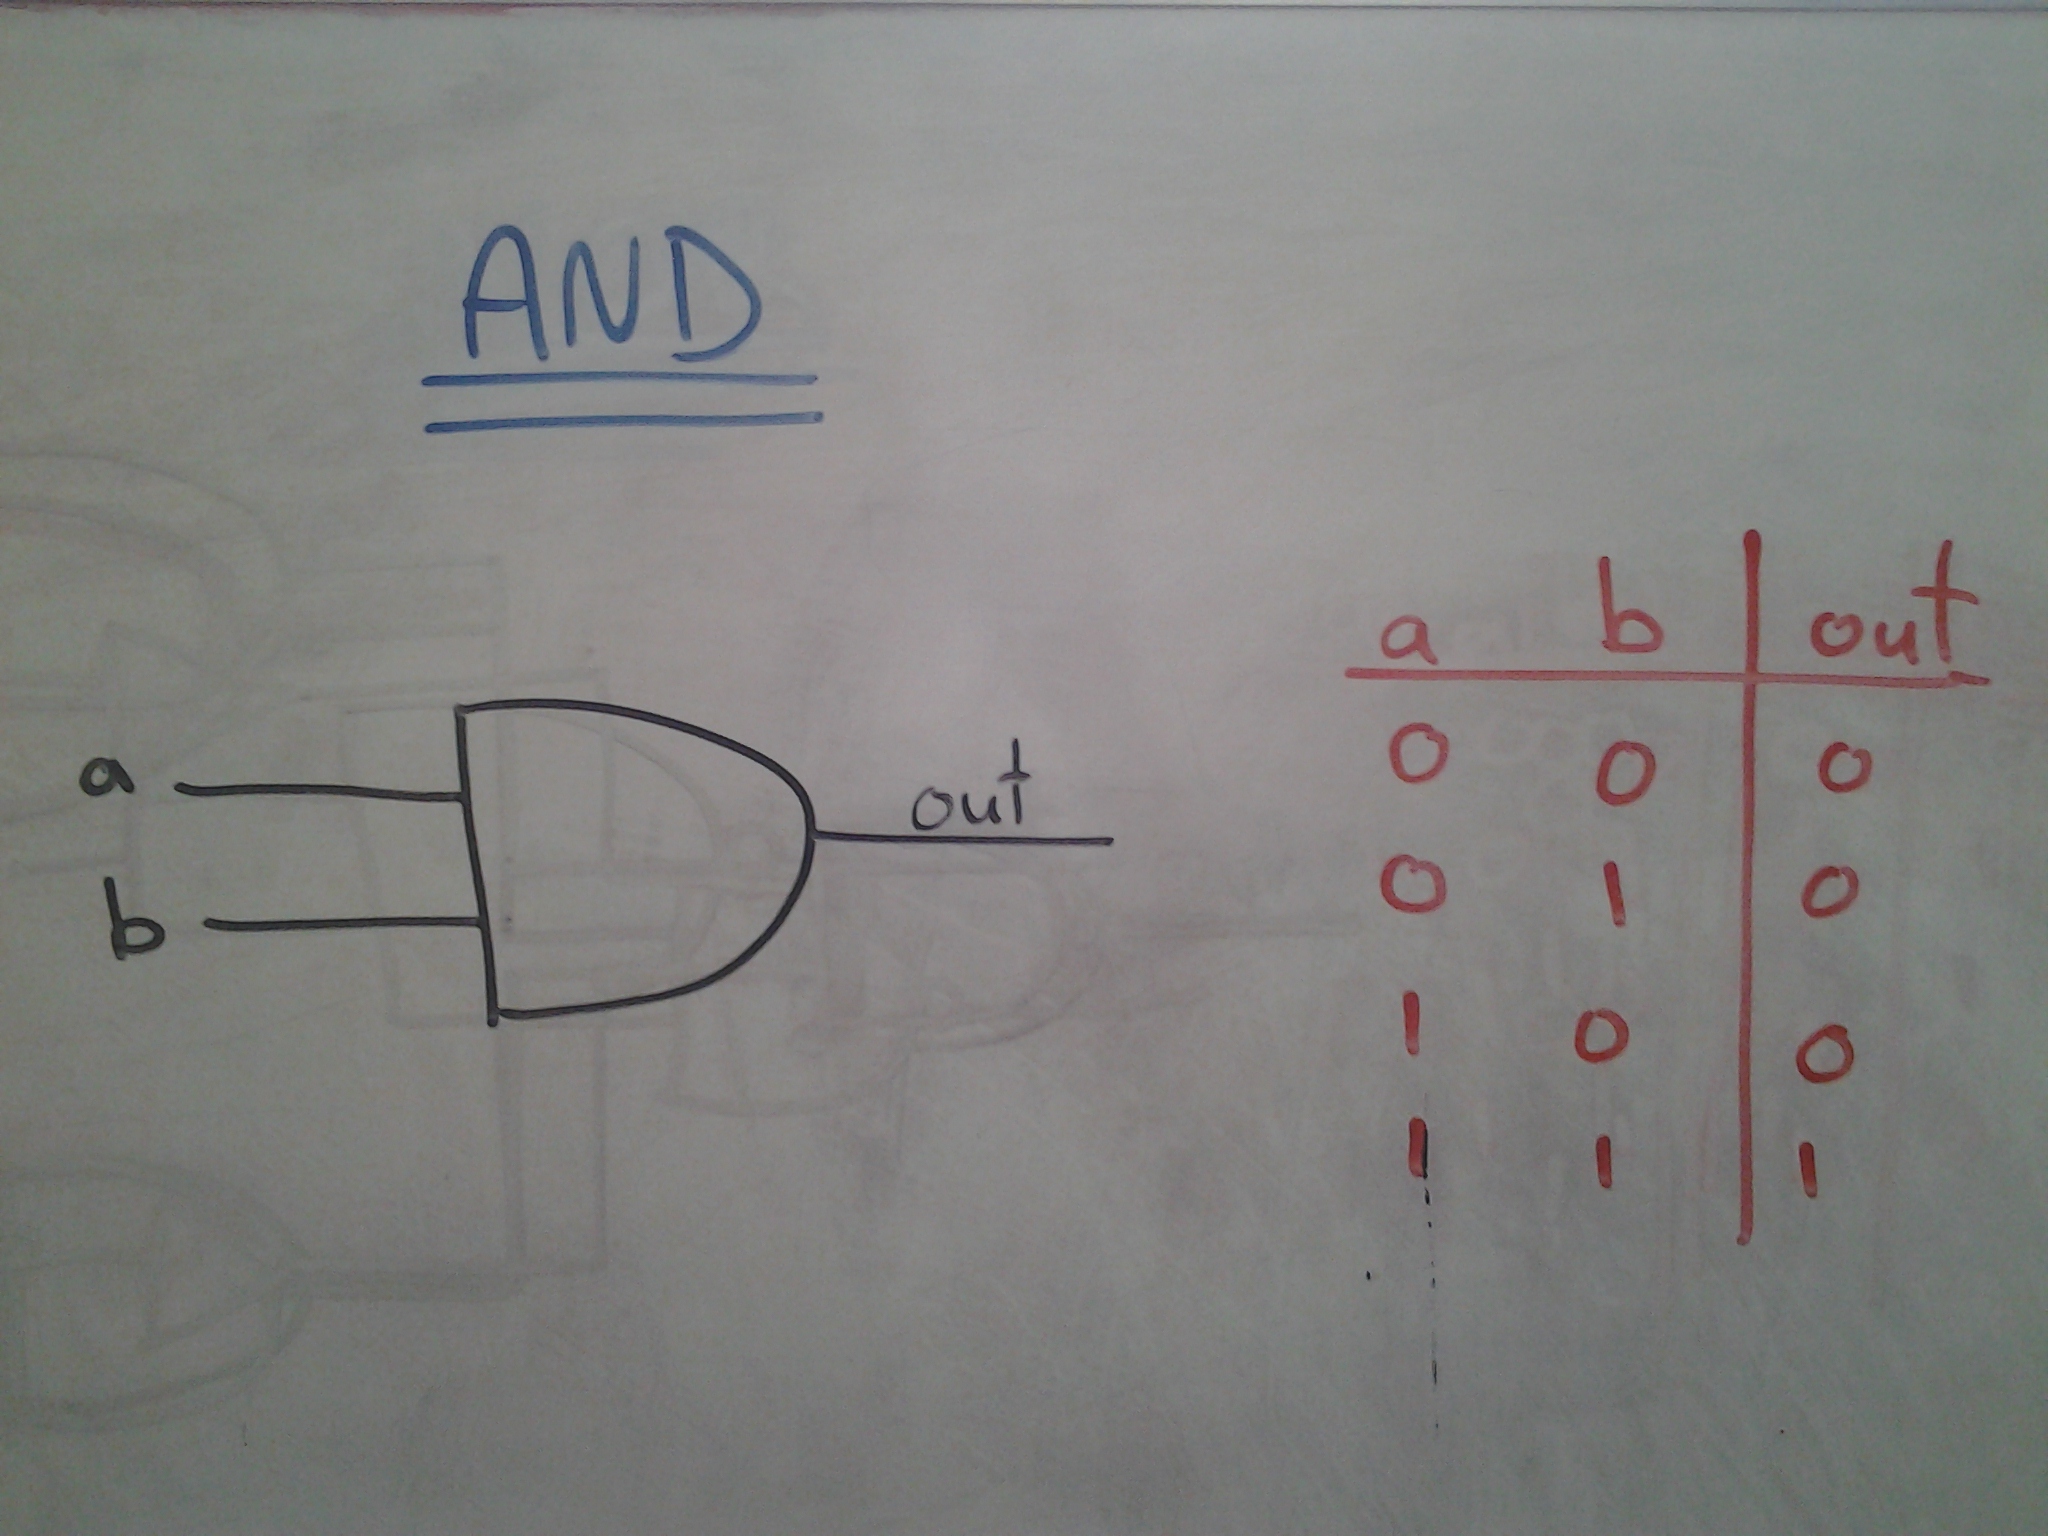 AND
a
b
out
a b out
0 0 0
0 1 0
1 0 0
1 1 1